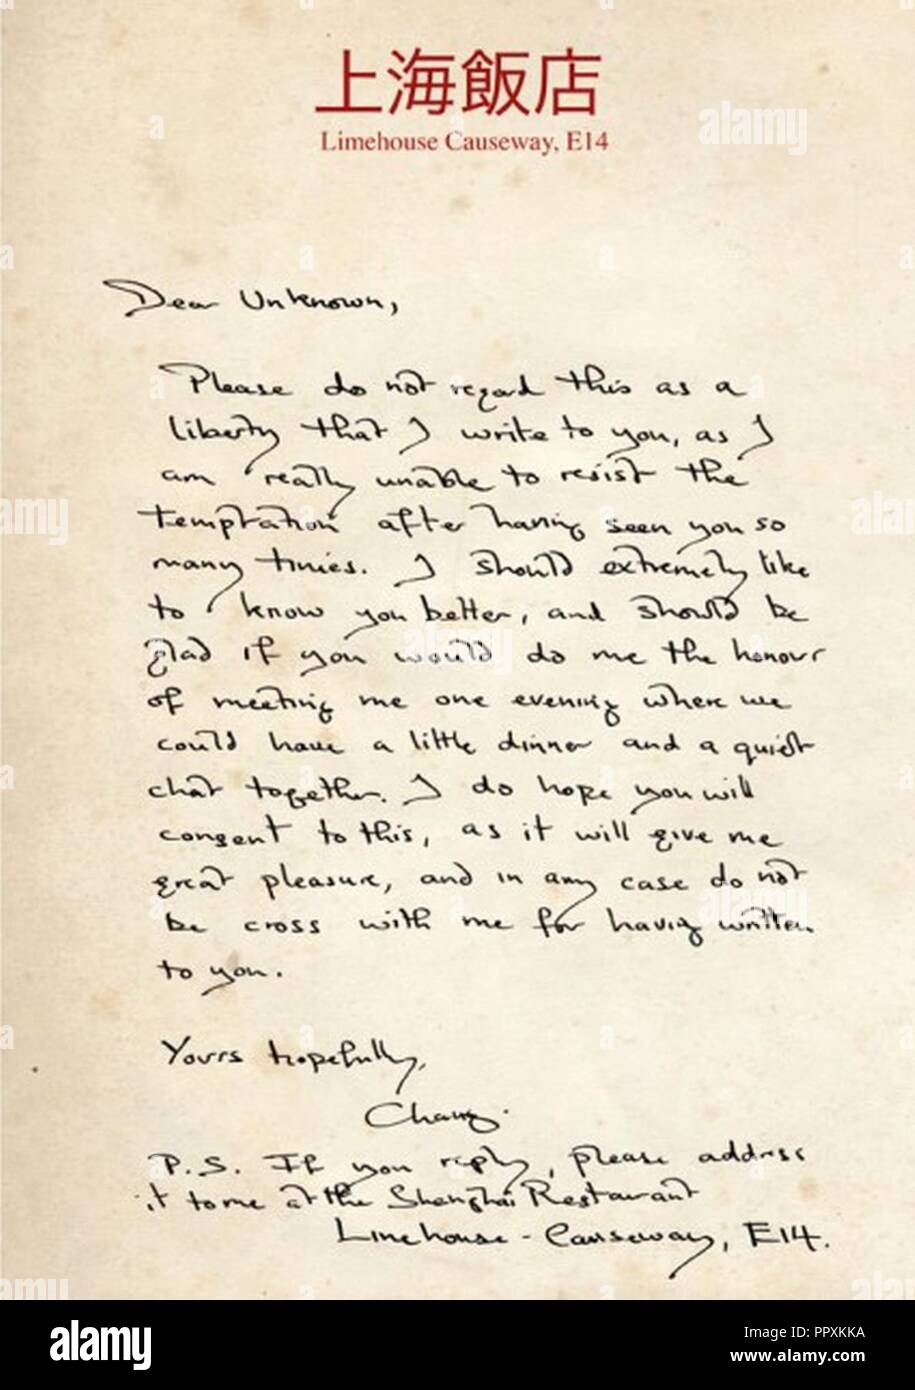 上海飯店
Limehouse Causeway, E14
Dear Unknown,
Please do not regard this as a
liberty that I write to you, as I
am really unable to resist the
temptation after having seen you so
many times. I should extremely like
to know you better, and should be
glad if you would do me the honour
of meeting me one evening where we
could have a little dinner and a quiet
chat together. I do hope you will
consent to this, as it will give me
great pleasure, and in any case do not
be cross with me for having written
to you.
Yours hopefully,
Chang.
P.S. If you reply, please address
it to me at the Shanghai Restaurant
Limehouse - Causeway, E14.
alamy
Image ID: PPXKKA
www.alamy.com